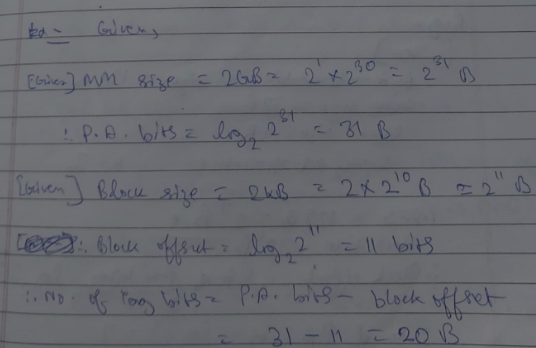 Given,
[Given] MM size = 2GB = 2^1 × 2^30 = 2^31 B
∴ P.A. bits = log₂ 2^31 = 31 B
[Given] Block size = 2kB = 2 × 2^10 B = 2^11 B
∴ Block offset = log₂ 2^11 = 11 bits
∴ No. of Tag bits = P.A. bits - block offset
= 31 - 11 = 20 B